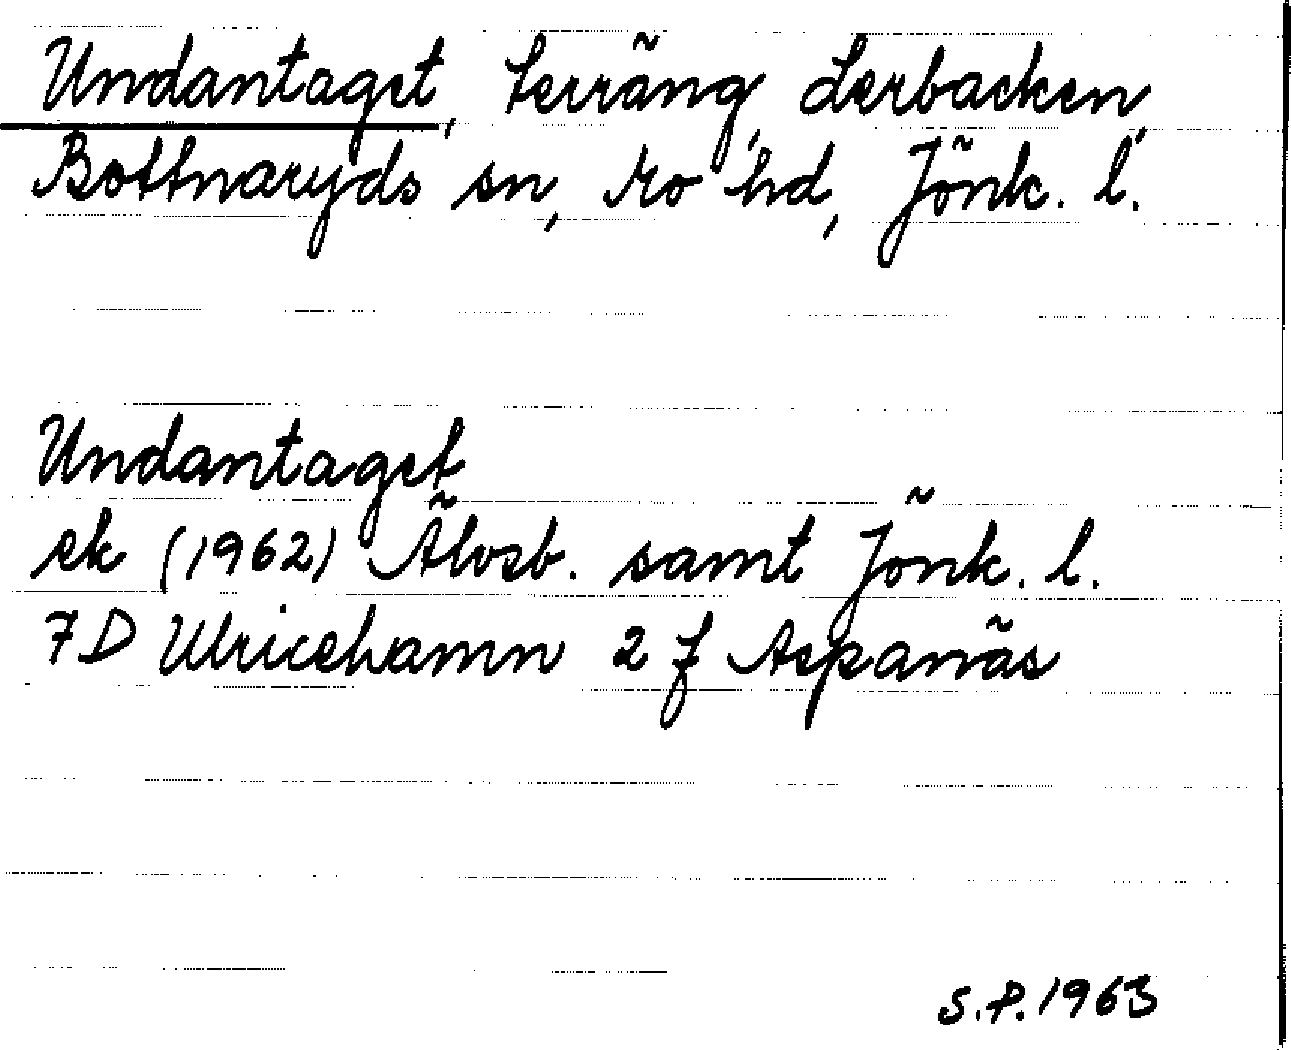 Undantaget, terräng, Lerbacken,
Bottnaryds sn, Mo hd, Jönk. l.
Undantaget
ek (1962) Älvsb. samt Jönk. l.
7D Ulricehamn 2 f Aspanäs
S.P. 1963